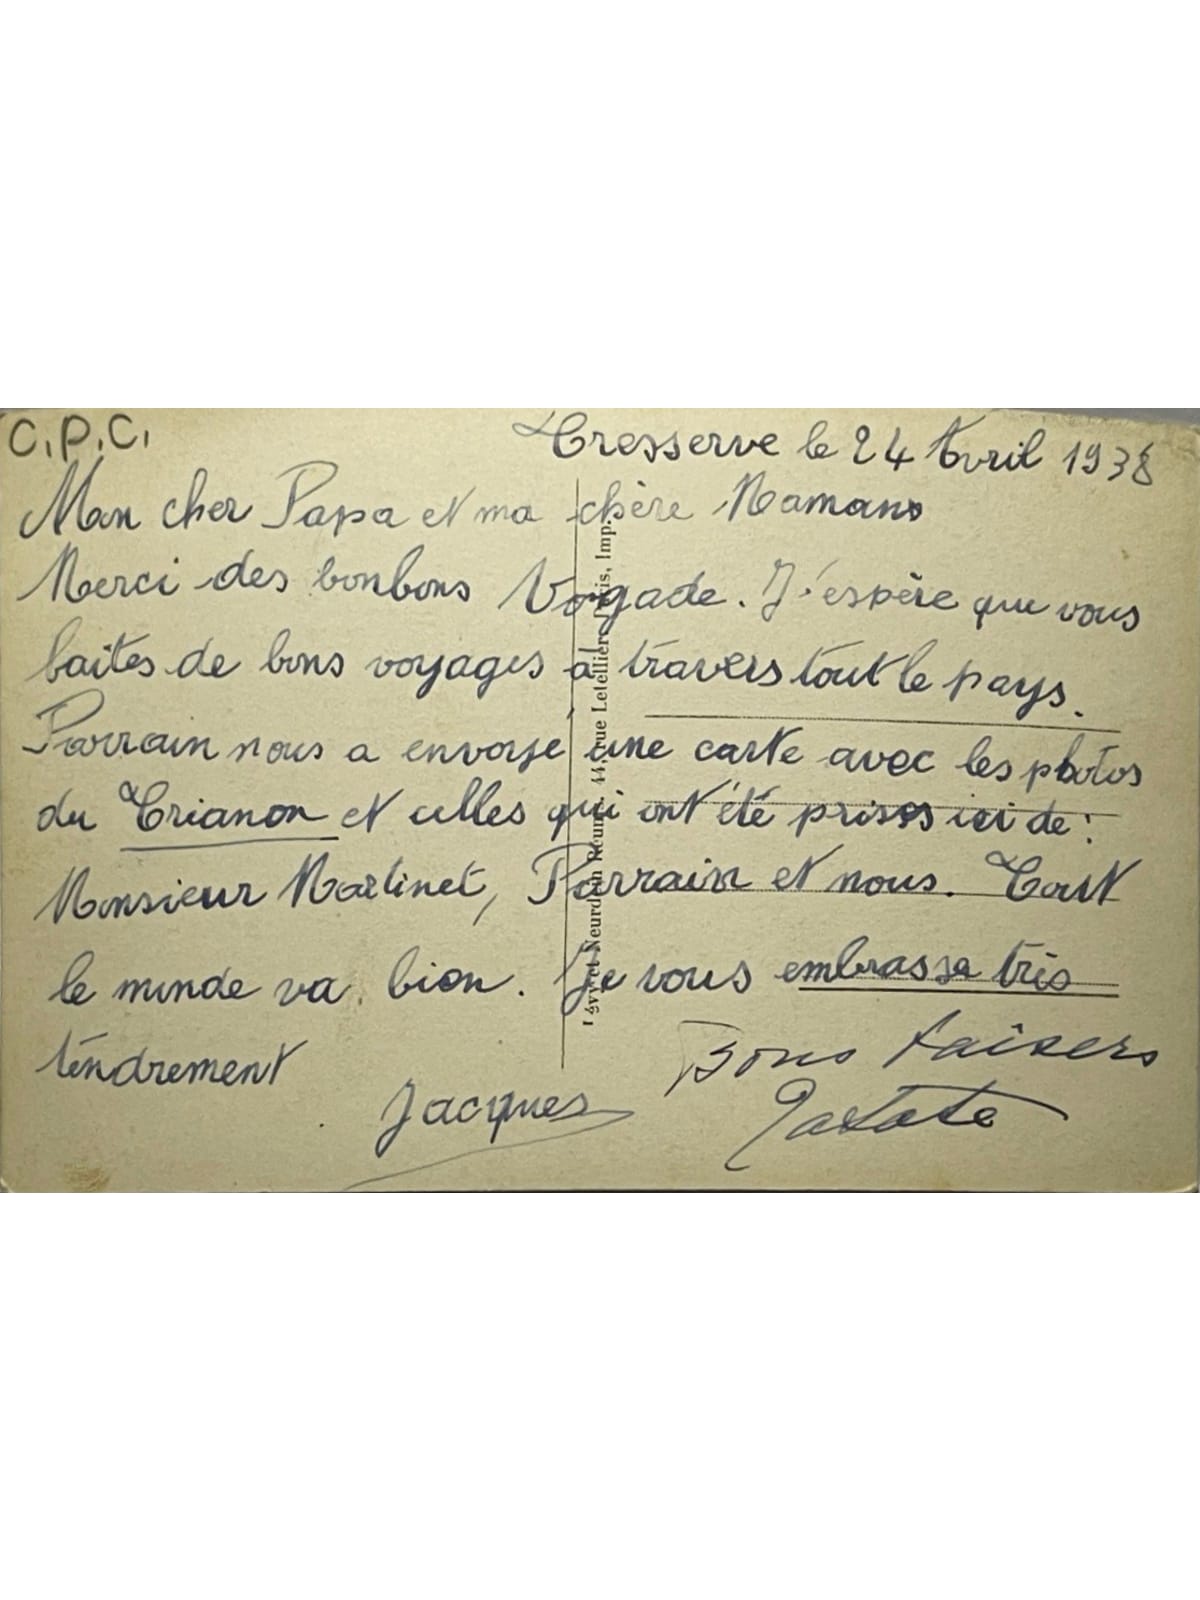 C.P.C.
Tresserve le 24 Avril 1938
Mon cher Papa et ma chère Maman
Merci des bonbons Vogade. J'espère que vous
faites de bons voyages à travers tout le pays.
Parrain nous a envoyé une carte avec les photos
du Trianon et celles qui ont été prises ici de :
Monsieur Martinet, Parrain et nous. Tout
le monde va bien. Je vous embrasse très
tendrement
Jacques
Bons baisers
Lévy et Neurdein Réunis, 44, rue Letellier, Paris, Imp.